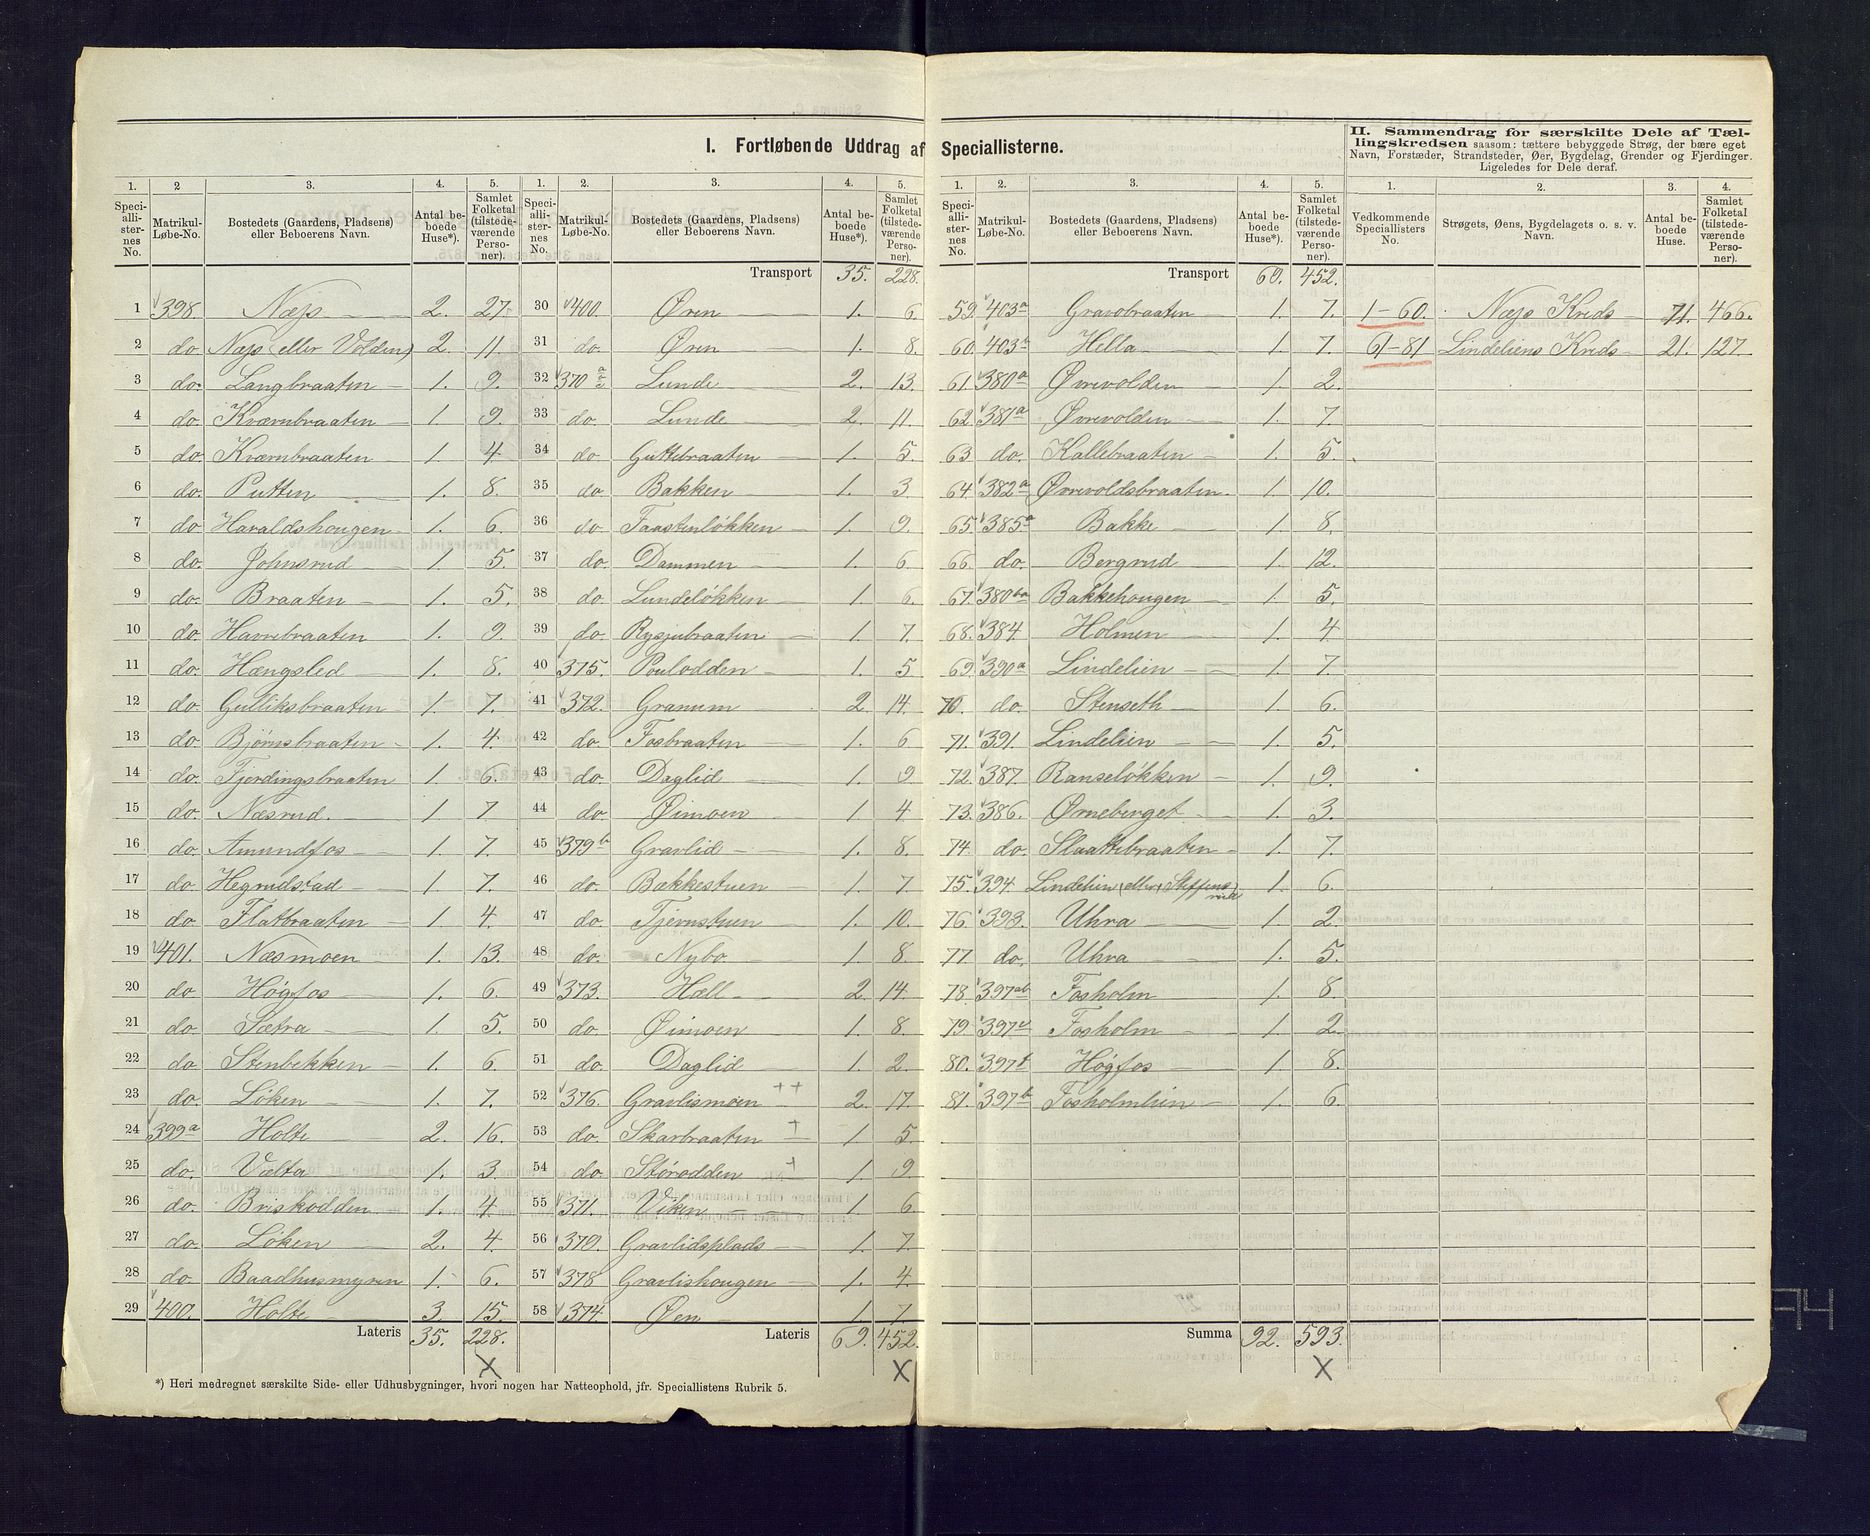 I. Fortløbende Uddrag af Speciallisterne.
II. Sammendrag for særskilte Dele af Tællingskredsen saasom: tættere bebyggede Strøg, der bære eget Navn, Forstæder, Strandsteder, Øer, Bygdelag, Grender og Fjerdinger. Ligeledes for Dele deraf.
1. 2 3. 4. 5.
Speciallisternes No. Matrikul-Løbe-No. Bostedets (Gaardens, Pladsens) eller Beboerens Navn. Antal beboede Huse*). Samlet Folketal (tilstedeværende Personer).
1 398 Næs 2. 27
2 do Næs (eller Volden) 2. 11.
3 do. Langbraaten 1. 9.
4 do. Kværnbraaten 1. 9.
5 do. Kværnbraaten 1. 4
6 do. Putten 1. 8.
7 do Haraldshougen 1. 6.
8 do. Johnsrud 1. 5.
9 do. Braaten 1. 5.
10 do. Havrebraaten 1. 9.
11 do. Hængsled 1. 8.
12 do. Gulliksbraaten 1. 7.
13 do. Bjørnsbraaten 1. 4.
14 do. Fjerdingsbraaten 1 6.
15 do. Næsrud. 1 7
16 do. Amundfos 1 7.
17 do. Hegrudstad 1 7.
18 do. Flatbraaten 1. 4.
19 401. Næsmoen 1. 13.
20 do Høgfos 1. 6.
21 do. Sætra 1. 5.
22 do. Stenbekken 1. 6.
23 do. Løken 1. 7.
24 399a Holte 2. 16.
25 do. Vælta 1. 3.
26 do. Briskodden 1. 4
27 do. Løken 2. 4.
28 do. Baadhusmyren 1. 6.
29 400. Holte 3. 15.
Lateris 35. 228.
X
1. 2. 3. 4. 5.
Speciallisternes No. Matrikul-Løbe-No. Bostedets (Gaardens, Pladsens) eller Beboerens Navn. Antal beboede Huse*). Samlet Folketal (tilstedeværende Personer).
Transport 35. 228.
30 400. Øren 1. 6.
31 do. Øren 1. 8.
32 370 Lunde 2. 13.
33 do. Lunde 2. 11.
34 do Guttebraaten 1. 5.
35 do Bakken 1. 3
36 do Taastenløkken 1. 9.
37 do. Dammen 1. 6
38 do. Lundeløkken 1. 6.
39 do. Rysjubraaten 1. 7.
40 375. Poulodden 1. 5
41 372. Granum 2. 14.
42 do. Fosbraaten 1. 6
43 do. Daglid 1. 9
44 do Øimoen 1 4
45 379b Gravlid 1. 8.
46 do. Bækkestuen 1. 7
47 do. Tjernstuen 1. 10.
48 do. Nybo 1. 8.
49 373. Hæll 2. 14.
50 do. Øimoen 1. 8
51 do. Daglid 1. 2.
52 376. Gravlismoen ++ 2. 17
53 do. Skarbraaten + 1 5.
54 do. Storodden + 1. 9
55 371. Viken 1. 6.
56 370. Gravlidsplads 1. 7.
57 378 Gravlishougen 1. 4.
58 374. Øen 1. 7.
Lateris 69. 452.
X
1. 2. 3. 4. 5.
Speciallisternes No. Matrikul-Løbe-No. Bostedets (Gaardens, Pladsens) eller Beboerens Navn. Antal beboede Huse*). Samlet Folketal (tilstedeværende Personer).
Transport 69. 452.
59 403a Gravobraaten 1. 7.
60. 403 Hella 1. 7.
61. 380a Øvrevolden 1. 2.
62. 381a Øvrevolden 1. 7.
63 do. Kallebraaten 1. 5.
64 382a Øvrevoldsbraaten. 1. 10.
65. 385a Bakke 1. 8.
66. do. Bergrud 1. 12.
67. 380ba Bakkehougen 1. 5.
68. 384. Holmen 1. 4
69. 390a Lindelien 1. 7.
70. do. Stenseth 1. 6.
71. 391. Lindelien 1. 5.
72. 387. Ranseløkken 1. 9.
73. 386. Ørneberget 1. 3.
74. do. Slaattebraaten 1. 7.
75. 394. Lindelien (eller Steffensrud) 1. 6.
76. 393. Uhra 1. 2.
77. do. Uhra 1. 5.
78 397ab Fosholm 1. 8.
79. 397 Fosholm 1. 2.
80. 397 Høgfos 1. 8.
81. 397b Fosholmlien 1. 6.
Summa 92. 593.
X
1. 2. 3. 4.
Vedkommende Speciallisters No. Strøgets, Øens, Bygdelagets o. s. v. Navn. Antal beboede Huse. Samlet Folketal (tilstedeværende Personer).
1-60. Næs Kreds 71. 466.
61-81 Lindeliens Kreds 21. 127.
*) Heri medregnet særskilte Side- eller Udhusbygninger, hvori nogen har Natteophold, jfr. Speciallistens Rubrik 5.